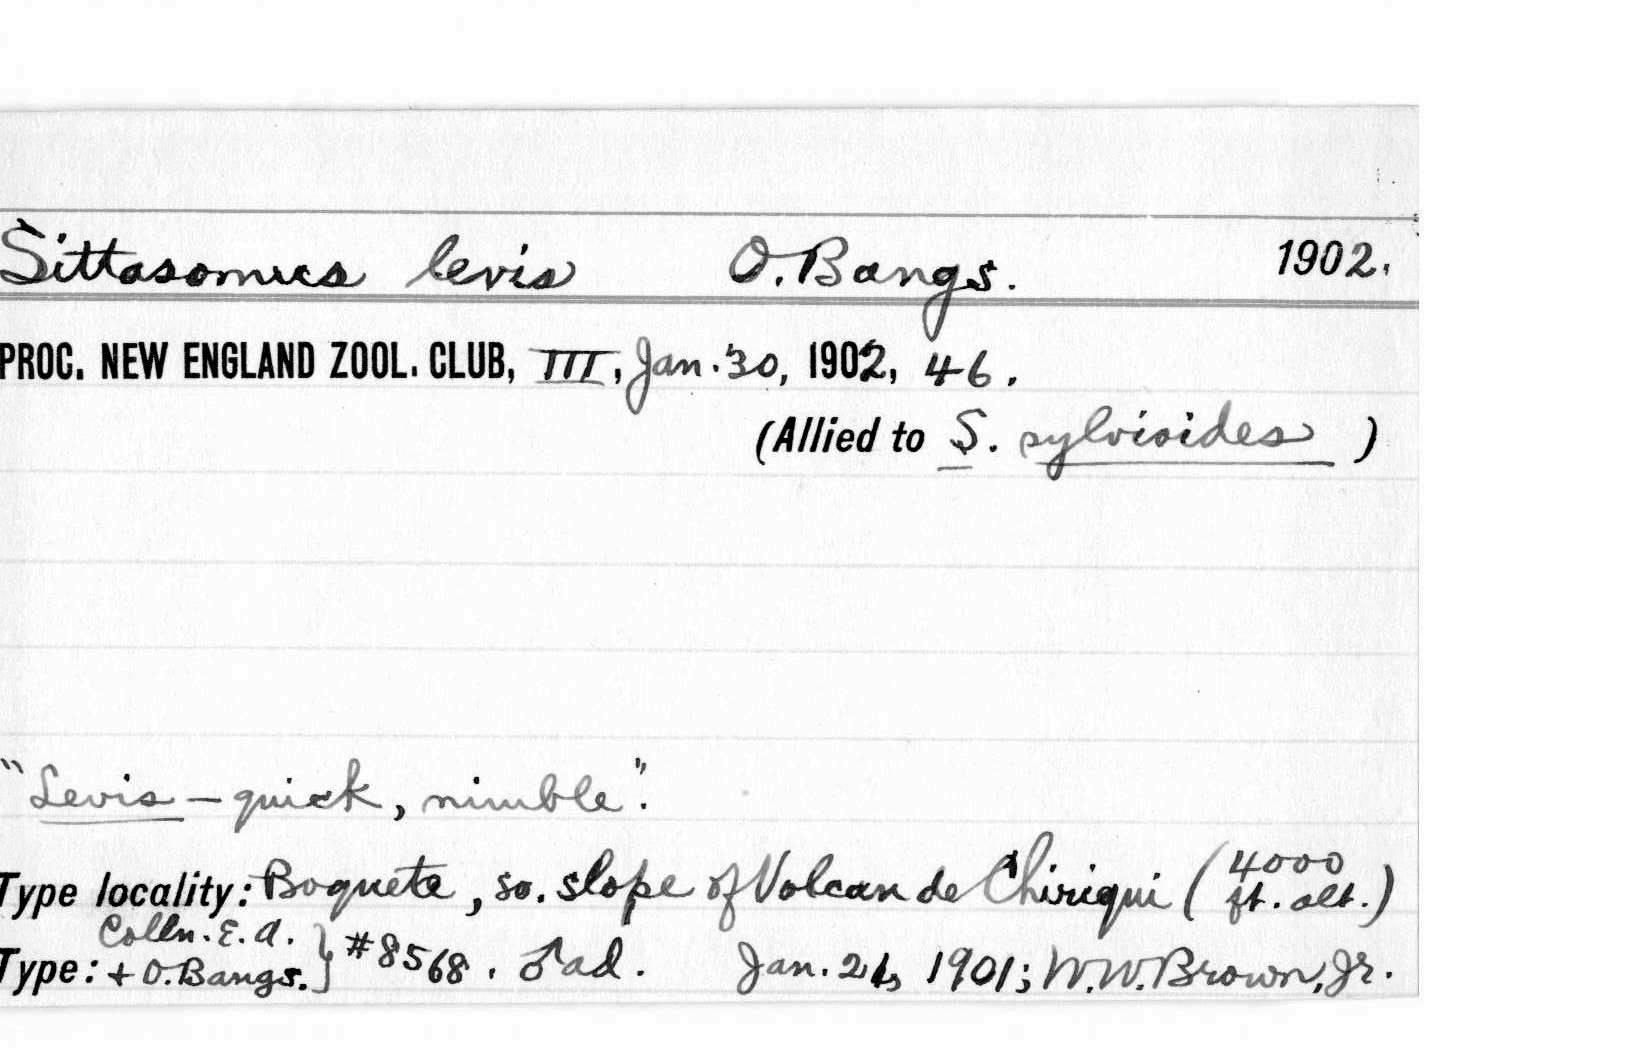 Sittasomus levis O. Bangs. 1902.
PROC. NEW ENGLAND ZOOL. CLUB, III, Jan. 30, 1902, 46.
(Allied to S. sylvioides)
"Levis - quick, nimble".
Type locality: Boquete, so. slope of Volcan de Chiriqui (4000 ft. alt.)
Colln. E. A.
Type: + O. Bangs.} #8568. ♂ ad. Jan. 21, 1901; W.W. Brown, Jr.